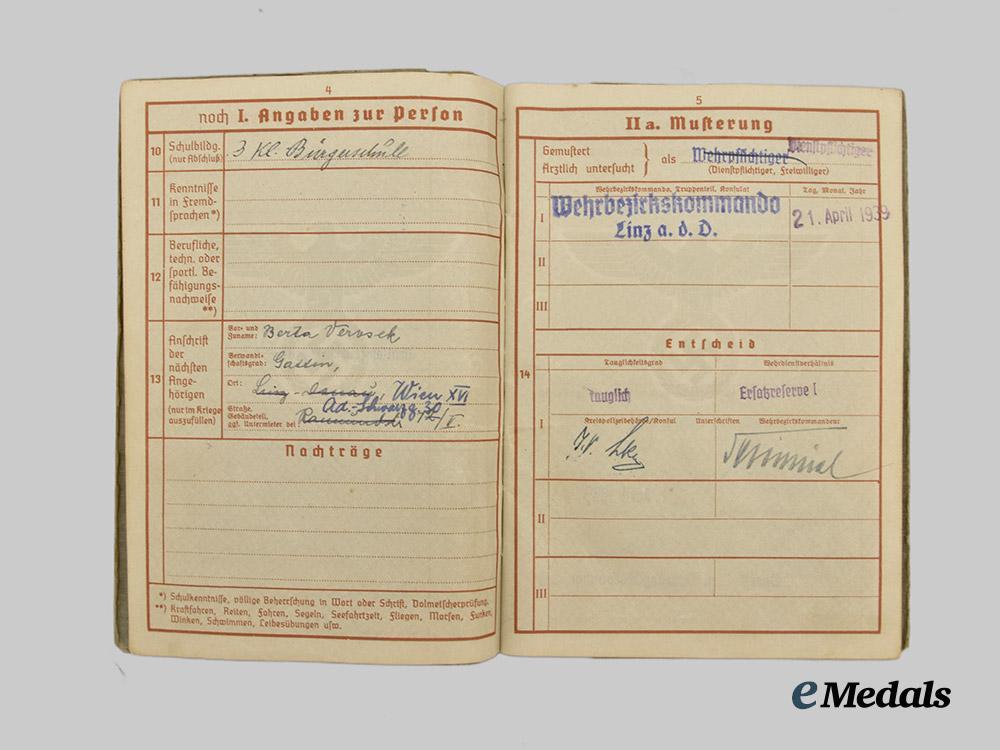 4
noch I. Angaben zur Person
10 Schulbildg. (nur Abschluß)
3 Kl. Bürgerschule
11 Kenntnisse in Fremdsprachen*)
12 Berufliche, techn. oder sportl. Befähigungsnachweise **)
13 Anschrift der nächsten Angehörigen (nur im Kriege auszufüllen)
Vor- und Zuname: Berta Verosek
Verwandtschaftsgrad: Gattin,
Ort: Linz-Donau, Wien XVI
Straße, Gebäudeteil, ggf. Untermieter bei:
Nachträge
*) Schulkenntnisse, völlige Beherrschung in Wort oder Schrift, Dolmetscherprüfung.
**) Kraftfahren, Reiten, Fahren, Segeln, Seefahrtzeit, Fliegen, Morsen, Funken,
Winken, Schwimmen, Leibesübungen usw.
5
IIa. Musterung
Gemustert
Ärztlich untersucht } als Wehrpflichtiger Dienstpflichtiger
(Dienstpflichtiger, Freiwilliger)
Wehrbezirkskommando, Truppenteil, Konsulat
Tag, Monat, Jahr
I Wehrbezirkskommando
Linz a. d. D.
21. April 1939
II
III
Entscheid
14
Tauglichkeitsgrad
Wehrdienstverhältnis
tauglich
Ersatzreserve I
I Kreispolizeibehörde/Konsul Unterschriften Wehrbezirkskommandeur
II
III
eMedals